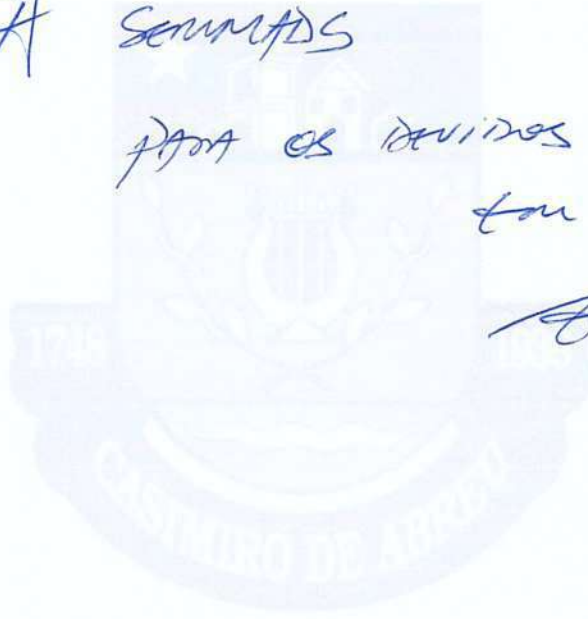 A SEMMADS
PARA OS DEVIDOS
Em
1748
CASIMIRO DE ABREU